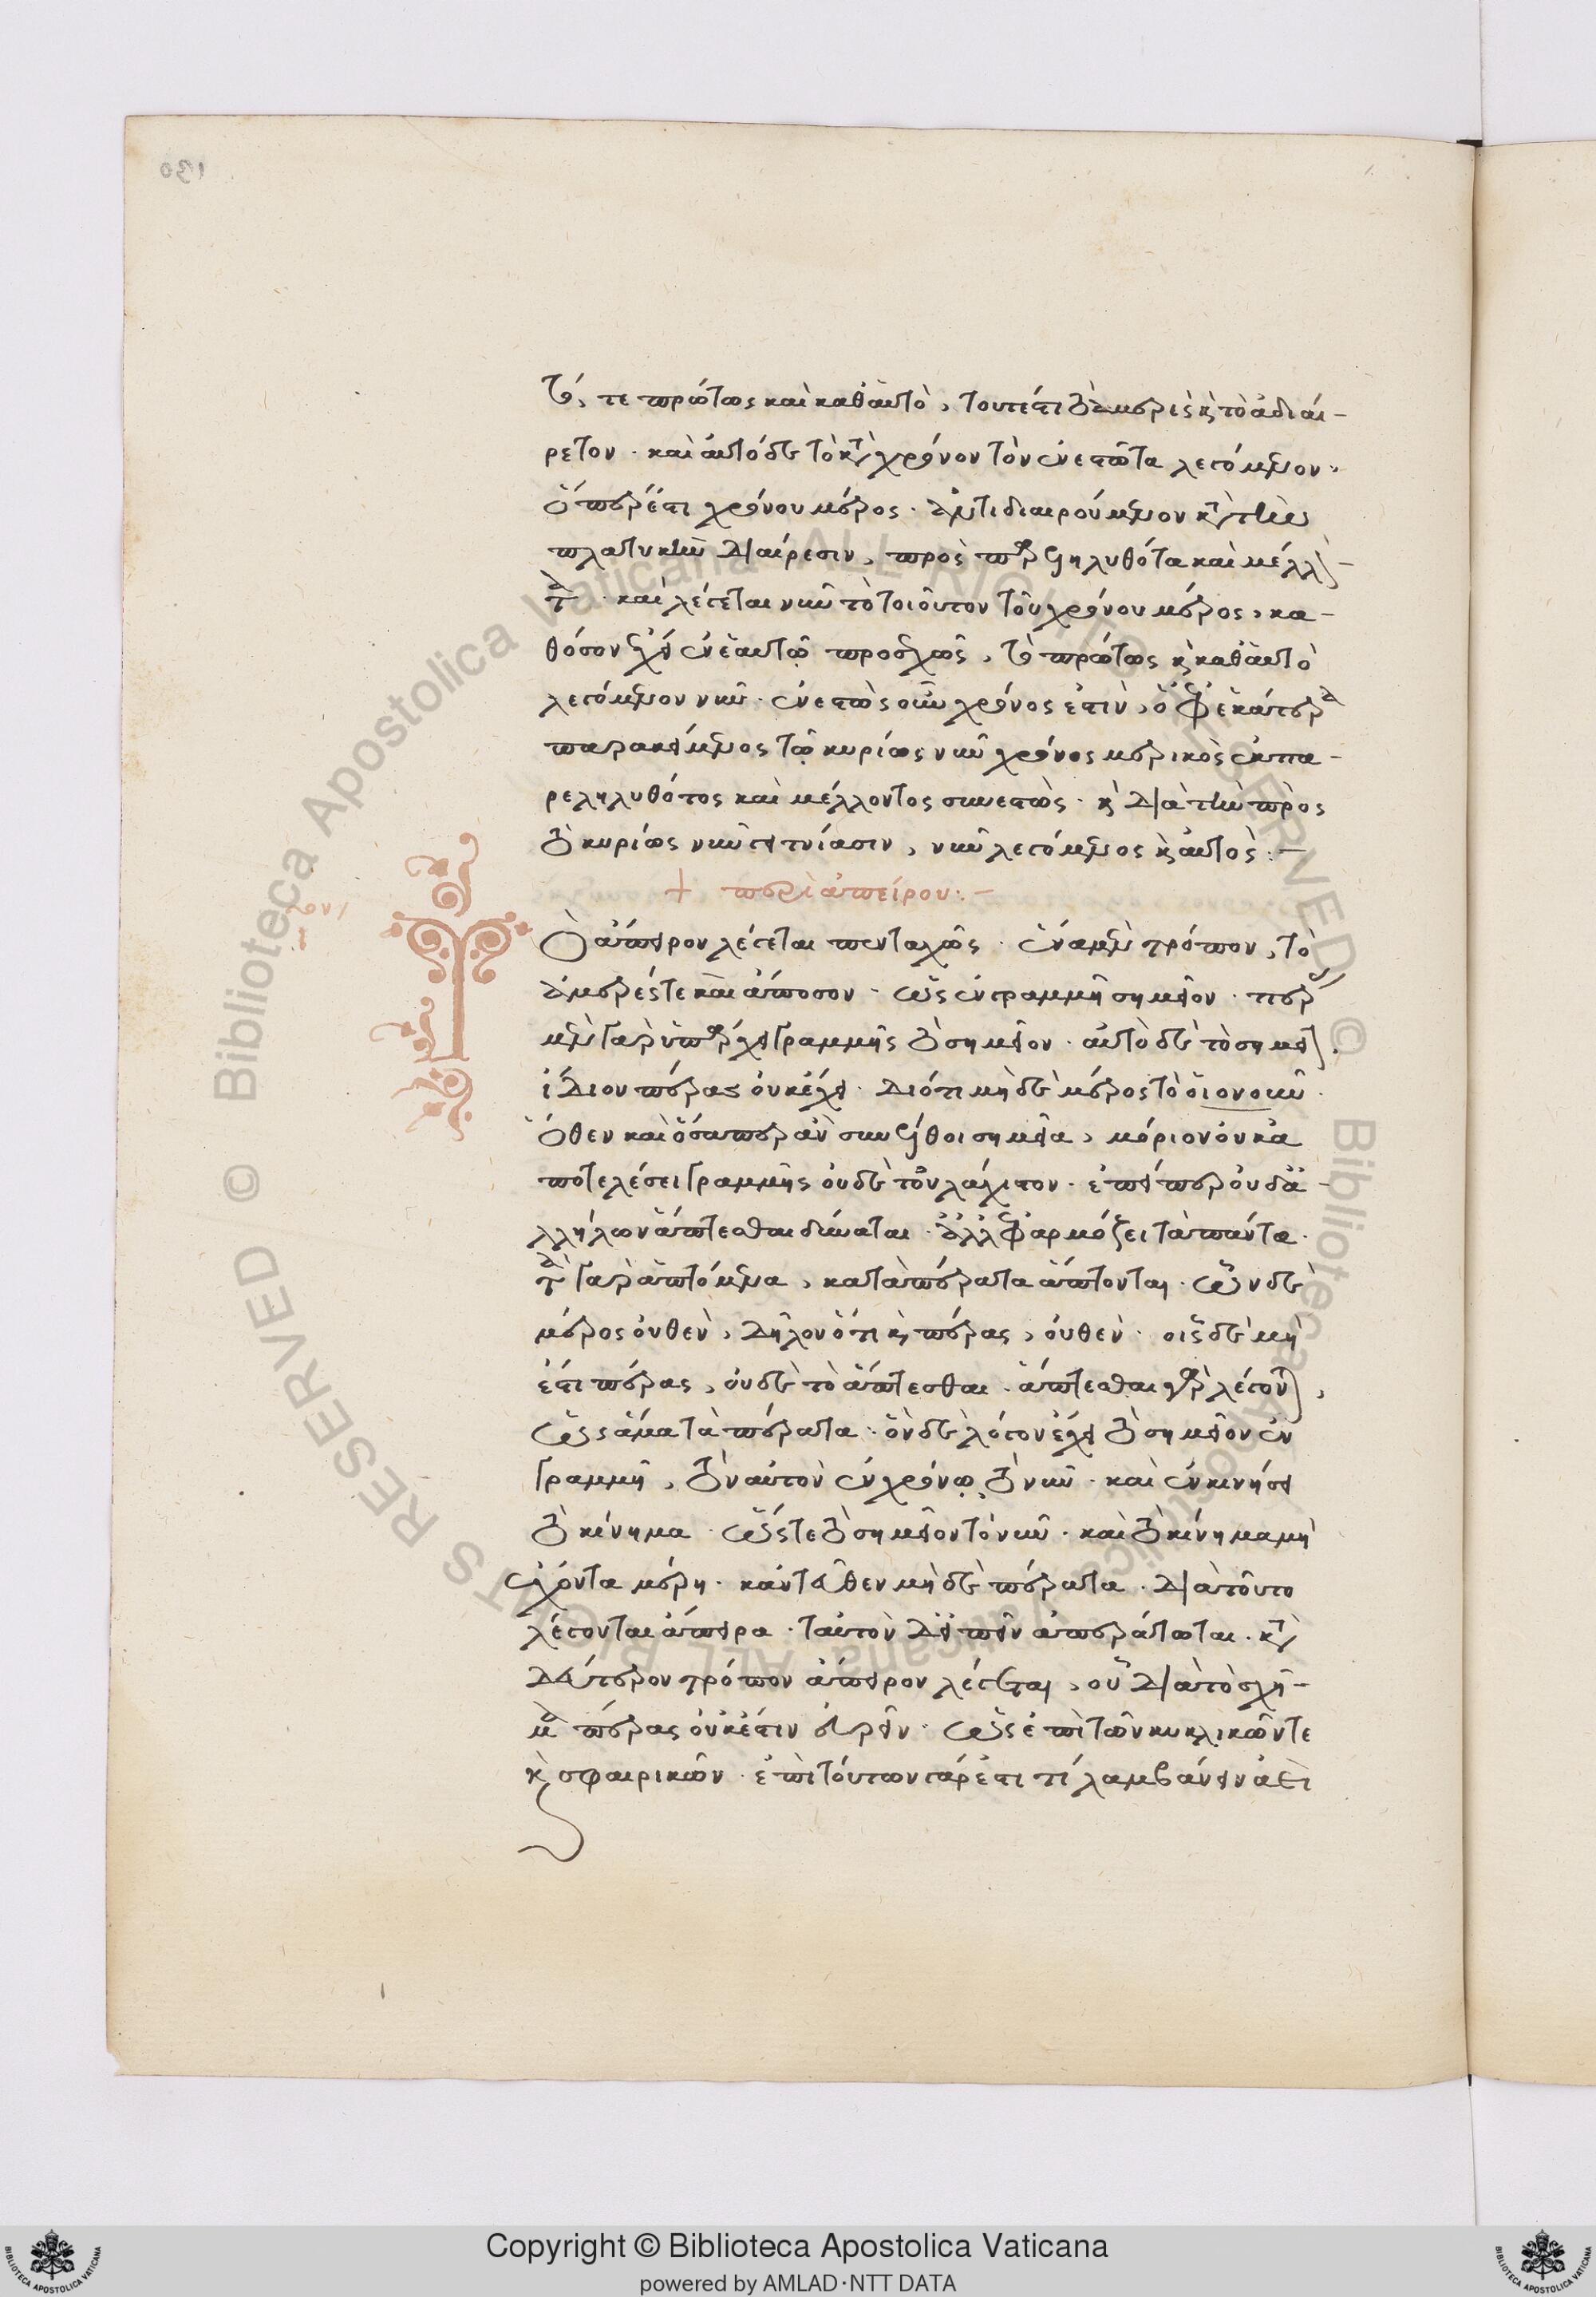 130
τό, τε πρώτως καὶ καθ' αὑτὸ, τουτέστι τὸ ἀμερὲς κ τὸ ἀδιαί-
ρετον · καὶ αὐτὸ δὲ τὸ κτ χρόνον τὸν ἐνεστῶτα λεγόμενον,
ὅπερ ἐστὶ χρόνου μέρος · ἀντιδιαιρούμενον κτ τὴν
πλατυκὴν διαίρεσιν, πρὸς παρεληλυθότα καὶ μέλλ-
τα · καὶ λέγεται νῦν τὸ τοιοῦτον τοῦ χρόνου μέρος, κα-
θόσον ἔχει ἐν ἑαυτῷ προσεχῶς, τὸ πρώτως κ καθ' αὑτὸ
λεγόμενον νῦν · ἐνεστὼς οὖν χρόνος ἐστὶν, ὁ ἐφ' ἑκάτερα
παρακείμενος τῷ κυρίως νῦν χρόνος μερικὸς ἐκ πα-
ρεληλυθότος καὶ μέλλοντος συνεστὼς · κ διὰ τὴν πρὸς
τὸ κυρίως νῦν γειτνίασιν, νῦν λεγόμενος κ αὐτὸς :-
+ περὶ ἀπείρου :-
Τὸ ἄπειρον λέγεται πενταχῶς · ἕνα μὲν τρόπον, τὸ
ἀμερές τε καὶ ἄποσον · ὡς ἐν γραμμῇ σημεῖον · πέρας
μὲν γὰρ ὑπάρχει γραμμῆς τὸ σημεῖον · αὐτὸ δὲ τὸ σημεῖ
ἴδιον πέρας οὐκ ἔχει · διότι μὴ δὲ μέρος τὸ οἱονοῦν ·
ὅθεν καὶ ὅσα περ ἂν συνέλθοι σημεῖα, μόριον οὐκ ἀ
ποτελέσει γραμμῆς οὐδὲ τοὐλάχιστον · ἐπείπερ οὐδ' ἀ-
λλήλων ἅπτεσθαι δύναται · ἀλλ' ἐφαρμόζει τὰ πάντα ·
τὰ γὰρ ἁπτόμενα, κατὰ πέρατα ἅπτονται · ὧν δὲ
μέρος οὐθὲν, δῆλον ὅτι κ πέρας, οὐθὲν · οἷς δὲ μὴ
ἐστι πέρας, οὐδὲ τὸ ἅπτεσθαι · ἅπτεσθαι γὰρ λέγοντ,
ὧν ἅμα τὰ πέρατα · ὃν δὲ λόγον ἔχει τὸ σημεῖον ἐν
γραμμῇ, τὸν αὐτὸν ἐν χρόνῳ τὸ νῦν · καὶ ἐν κινήσει
τὸ κίνημα · ὥστε τὸ σημεῖον τὸ νῦν · καὶ τὸ κίνημα μὴ
ἔχοντα μέρη · κἀντεῦθεν μὴ δὲ πέρατα · διὰ τοῦτο
λέγονται ἄπειρα · ταὐτὸν δ' εἰπεῖν ἀπεράτωται · κτ
δεύτερον τρόπον ἄπειρον λέγεται, οὗ διὰ τὸ σχῆ-
μα πέρας οὐκ ἔστιν εὑρεῖν · ὡς ἐπὶ τῶν κυκλικῶν τε
κ σφαιρικῶν · ἐπὶ τούτων γάρ ἐστί τι λαμβάνειν ἀεὶ